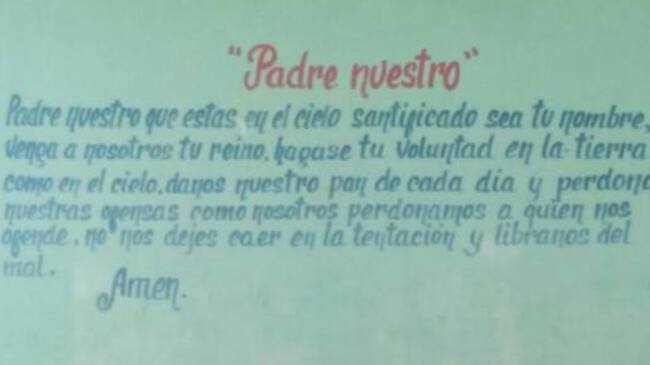 "Padre nuestro"
Padre nuestro que estas en el cielo santificado sea tu nombre,
venga a nosotros tu reino, hagase tu voluntad en la tierra
como en el cielo, danos nuestro pan de cada dia y perdona
nuestras ofensas como nosotros perdonamos a quien nos
ofende. no nos dejes caer en la tentación y libranos del
mal.
Amen.